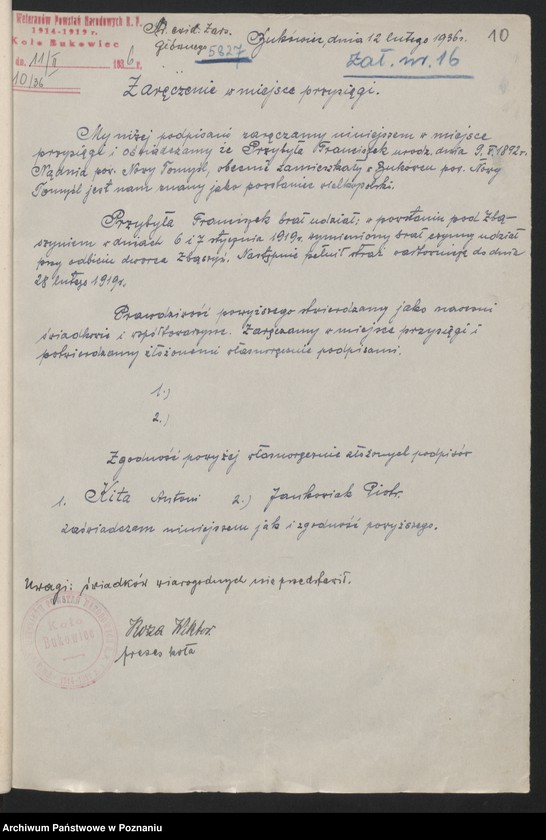 Weteranów Powstań Narodowych R. P.
1914-1919 r.
Koło Bukowiec
dn. 11/II 1936 r.
10/36
Nr. ewid. Zarz.
Głównego 5827
Bukówiec, dnia 12 lutego 1936r.
10
zał. nr. 16
Zaręczenie w miejsce przysięgi.
My niżej podpisani zaręczamy niniejszem w miejsce
przysięgi i oświadczamy że Przybyła Franciszek urodz. dnia 9.X.1892r.
Nądnia pow. Nowy Tomyśl, obecnie zamieszkały w Bukówcu pow. Nowy
Tomyśl jest nam znany jako powstaniec wielkopolski.
Przybyła Franciszek brał udział: w powstaniu pod Zbą-
szyniem w dniach 6 i 7 stycznia 1919r. wymieniony brał czynny udział
przy odbiciu dworca Zbąszyń. Następnie pełnił straż do dnia
28 lutego 1919r.
Prawdziwość powyższego stwierdzamy jako naoczni
świadkowie i współtowarzysze. Zaręczamy w miejsce przysięgi i
potwierdzamy złożonemi własnoręcznie podpisami.
1.)
2.)
Zgodność powyżej własnoręcznie złożonych podpisów
1. Kita Antoni 2.) Jankowiak Piotr
zaświadczam niniejszem jak i zgodność powyższego.
Uwagi: świadków wiarogodnych nie przedstawił.
Koza Wiktor
prezes koła
Koło
Bukowiec
Archiwum Państwowe w Poznaniu